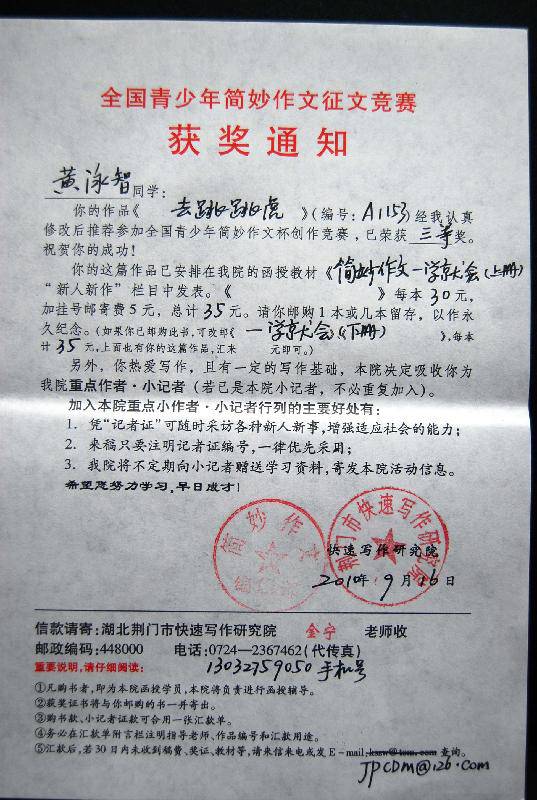 全国青少年简妙作文征文竞赛
获奖通知
黄泳智同学:
你的作品《 去跳跳虎 》(编号: A1153 经我认真
修改后推荐参加全国青少年简妙作文杯创作竞赛,已荣获 三等奖。
祝贺你的成功!
你的这篇作品已安排在我院的函授教材《简妙作文一学就会(上册)
"新人新作"栏目中发表。《 》每本30元,
加挂号邮寄费5元,总计35元。请你邮购1本或几本留存,以作永
久纪念。(如果你已邮购此书,可改邮《一学就会》(下册) 》,每本
计35元,上面也有你的这篇作品,汇来 元即可。)
另外,你热爱写作,且有一定的写作基础,本院决定吸收你为
我院重点作者·小记者(若已是本院小记者,不必重复加入)。
加入本院重点小作者·小记者行列的主要好处有:
1. 凭"记者证"可随时采访各种新人新事,增强适应社会的能力;
2. 来稿只要注明记者证编号,一律优先采用;
3. 我院将不定期向小记者赠送学习资料,寄发本院活动信息。
希望您努力学习,早日成才!
简妙作文
荆门市快速写作研究院
快速写作研究院
2010年9月16日
信款请寄:湖北荆门市快速写作研究院 金宁 老师收
邮政编码:448000 电话:0724—2367462(代传真)
重要说明,请仔细阅读: 13032759050 手机号
①凡购书者,即为本院函授学员,本院将负责进行函授辅导。
②获奖证书将与你邮购的书一并寄出。
③购书款、小记者证款可合用一张汇款单。
④务必在汇款单附言栏注明指导老师、作品编号和汇款用途。
⑤汇款后,若30日内未收到稿费、奖证、教材等,请来信来电或发E-mail:ksxw@tom.com 查询。
JPCDM@126.com